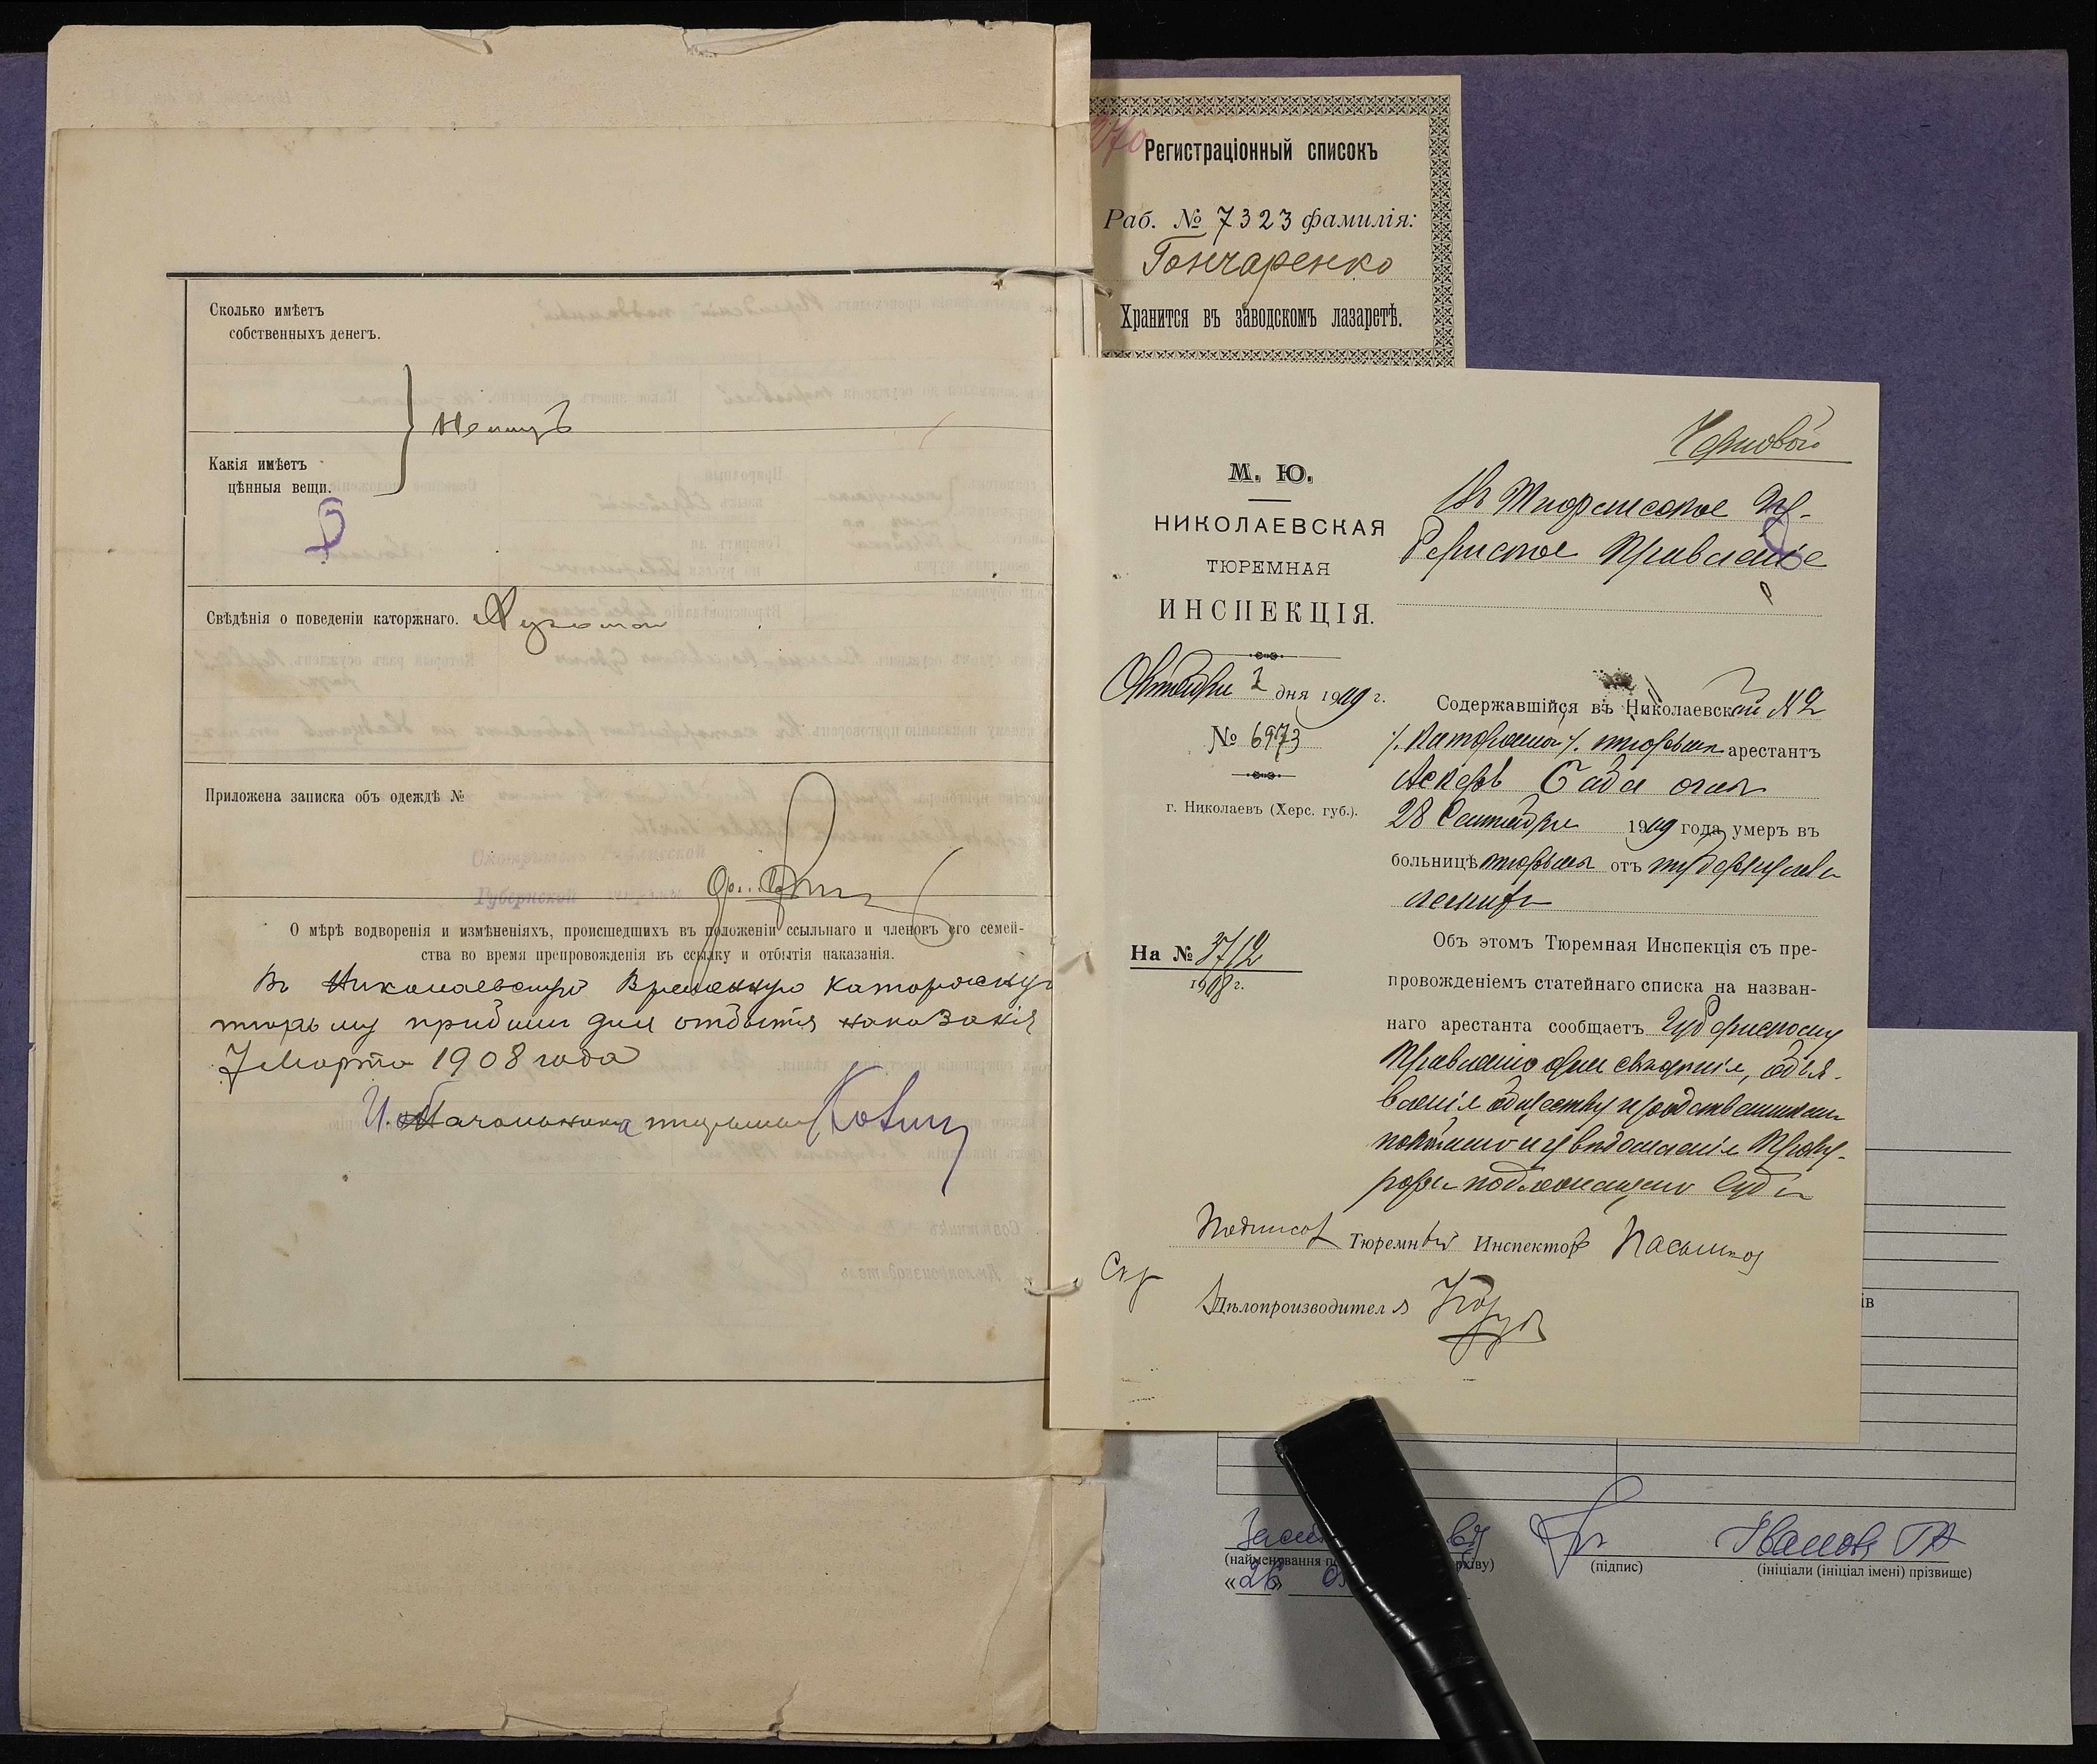 Сколько имѣетъ
собственныхъ денегъ.
Какія имѣетъ
цѣнныя вещи.
Свѣдѣнія о поведеніи каторжнаго.
Приложена записка объ одеждѣ №
О мѣрѣ водворенія и измѣненіяхъ, происшедшихъ въ положеніи ссыльнаго и членовъ его семей-
ства во время препровожденія въ ссылку и отбытія наказанія.
Въ Николаевскую Временную каторжную
тюрьму прибылъ для отбытія наказанія
7 Марта 1908 года
И. об. Начальника тюрьмы
270
Регистраціонный списокъ
Раб. № 7323 фамилія:
Гончаренко
Хранится въ заводскомъ лазаретѣ.
М. Ю.
НИКОЛАЕВСКАЯ
ТЮРЕМНАЯ
ИНСПЕКЦІЯ.
Октября 2 дня 1909 г.
№ 6973
г. Николаевъ (Херс. губ.).
На № 3712
1908 г.
Въ Тифлисское Гу-
бернское Правленіе
Содержавшійся въ Николаевской № 2
/. Каторжной /. тюрьмѣ арестантъ
Аскеръ Сада оглы
28 Сентября 1909 года умеръ въ
больницѣ тюрьмы отъ туберкулеза
легкихъ
Объ этомъ Тюремная Инспекція съ пре-
провожденіемъ статейнаго списка на назван-
наго арестанта сообщаетъ Губернскому
Правленію для свѣдѣнія, объя-
вленія обществу и родственникамъ
покойнаго и увѣдомленія Проку-
рора подлежащаго Суда
Подписалъ Тюремный Инспекторъ
Скр
Дѣлопроизводитель
ів
(найменування
архіву)
(підпис)
Іванова
(ініціали (ініціал імені) прізвище)
«26»